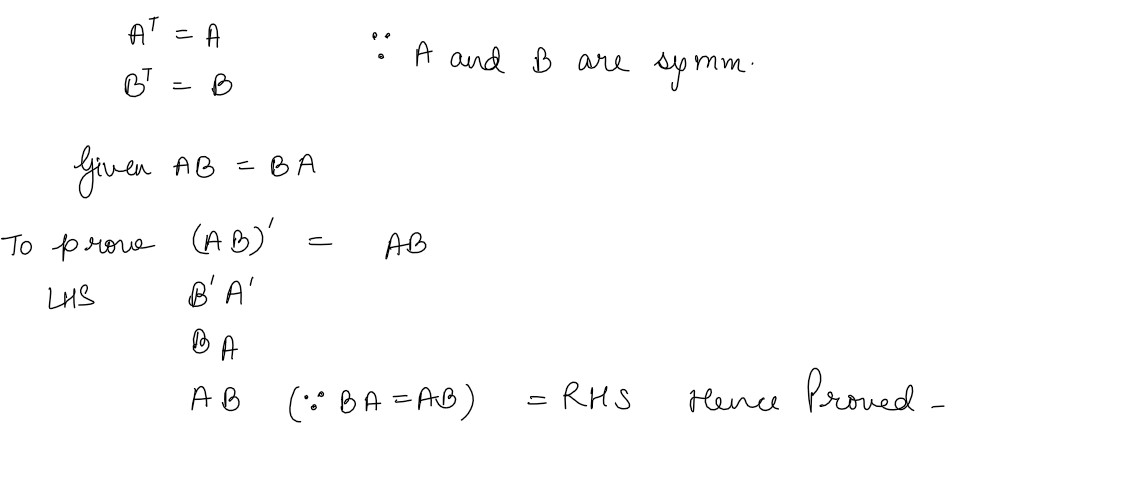 Aᵀ = A
∵ A and B are symm.
Bᵀ = B
Given AB = BA
To prove (AB)' = AB
LHS B'A'
BA
AB (∵ BA = AB) = RHS Hence Proved -